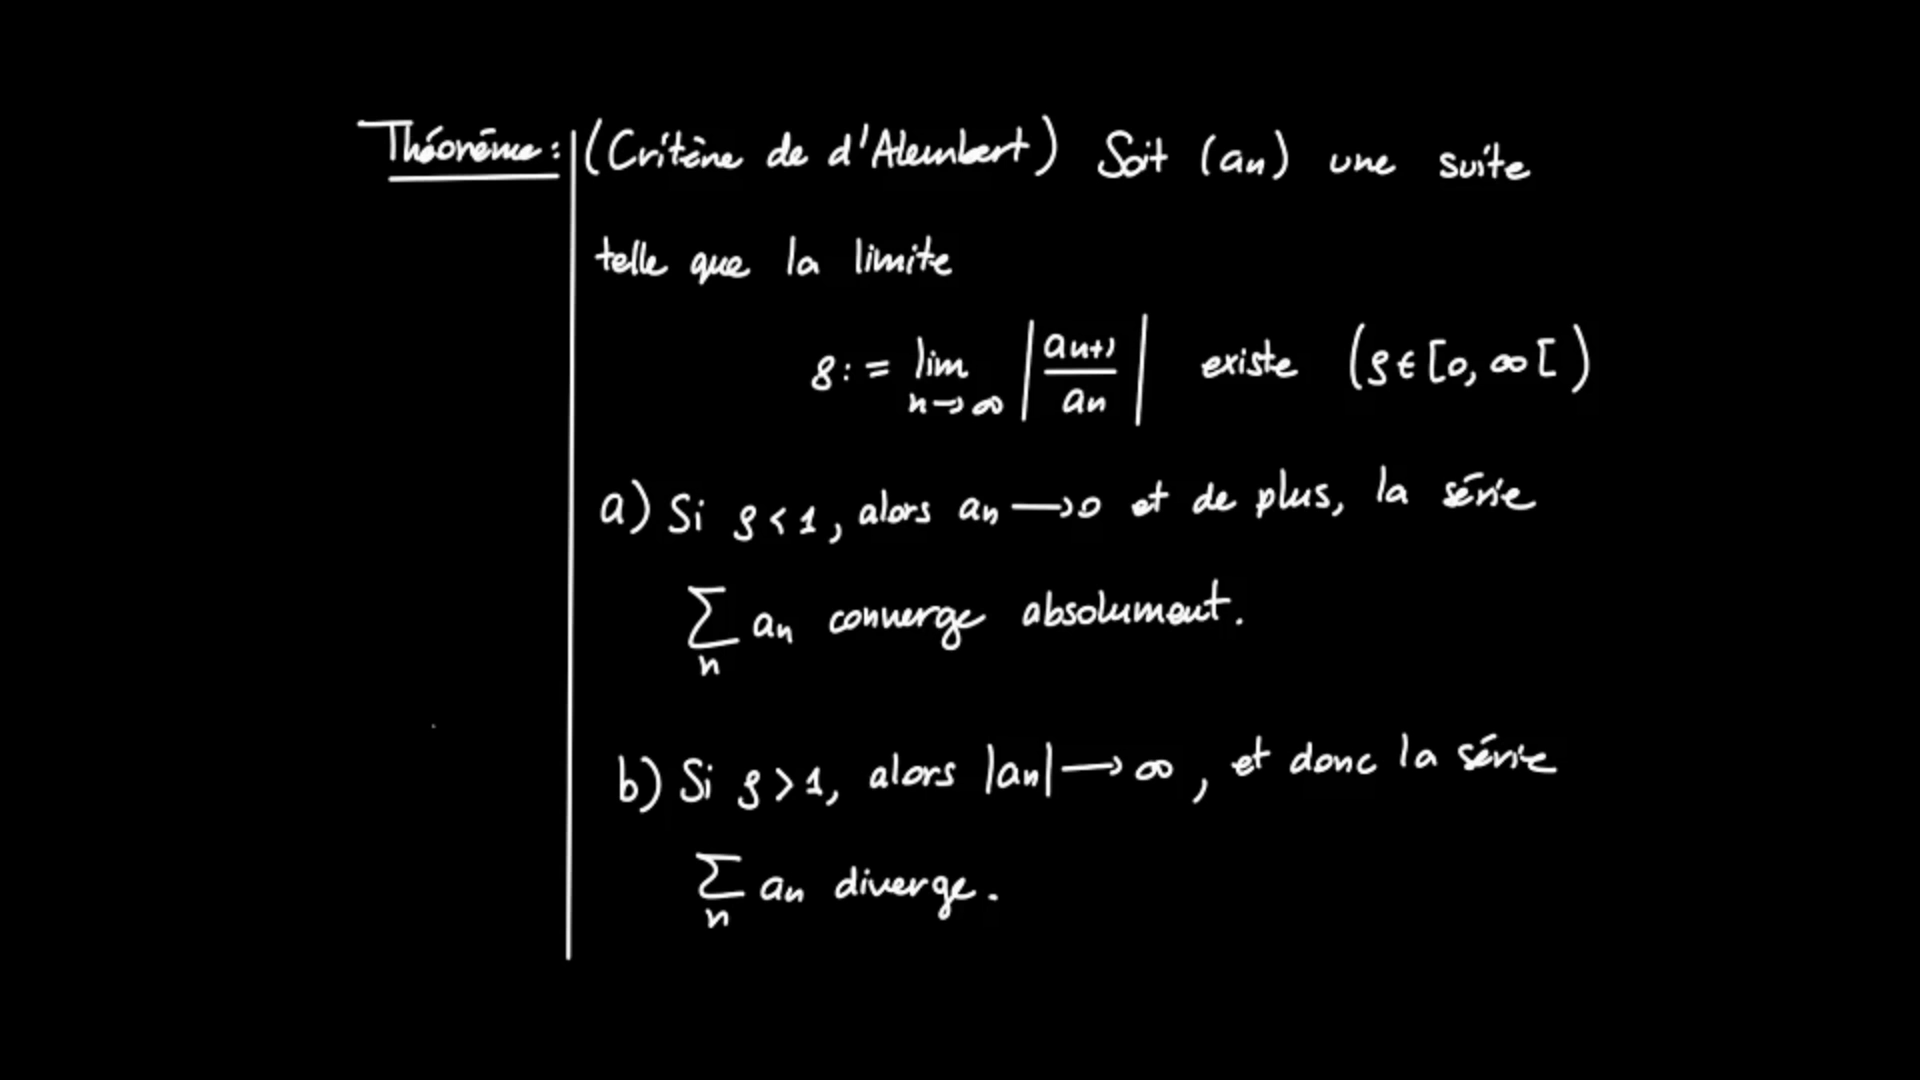 Théorème: (Critère de d'Alembert) Soit (an) une suite
telle que la limite
ρ := lim n→∞ |an+1/an| existe (ρ ∈ [0, ∞[)
a) Si ρ < 1, alors an → 0 et de plus, la série
∑n an converge absolument.
b) Si ρ > 1, alors |an| → ∞, et donc la série
∑n an diverge.